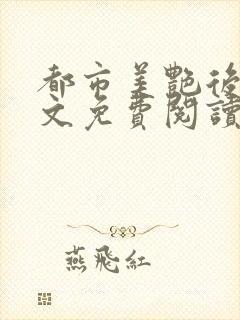 都市美艷後
文免費閱讀
燕飛紅